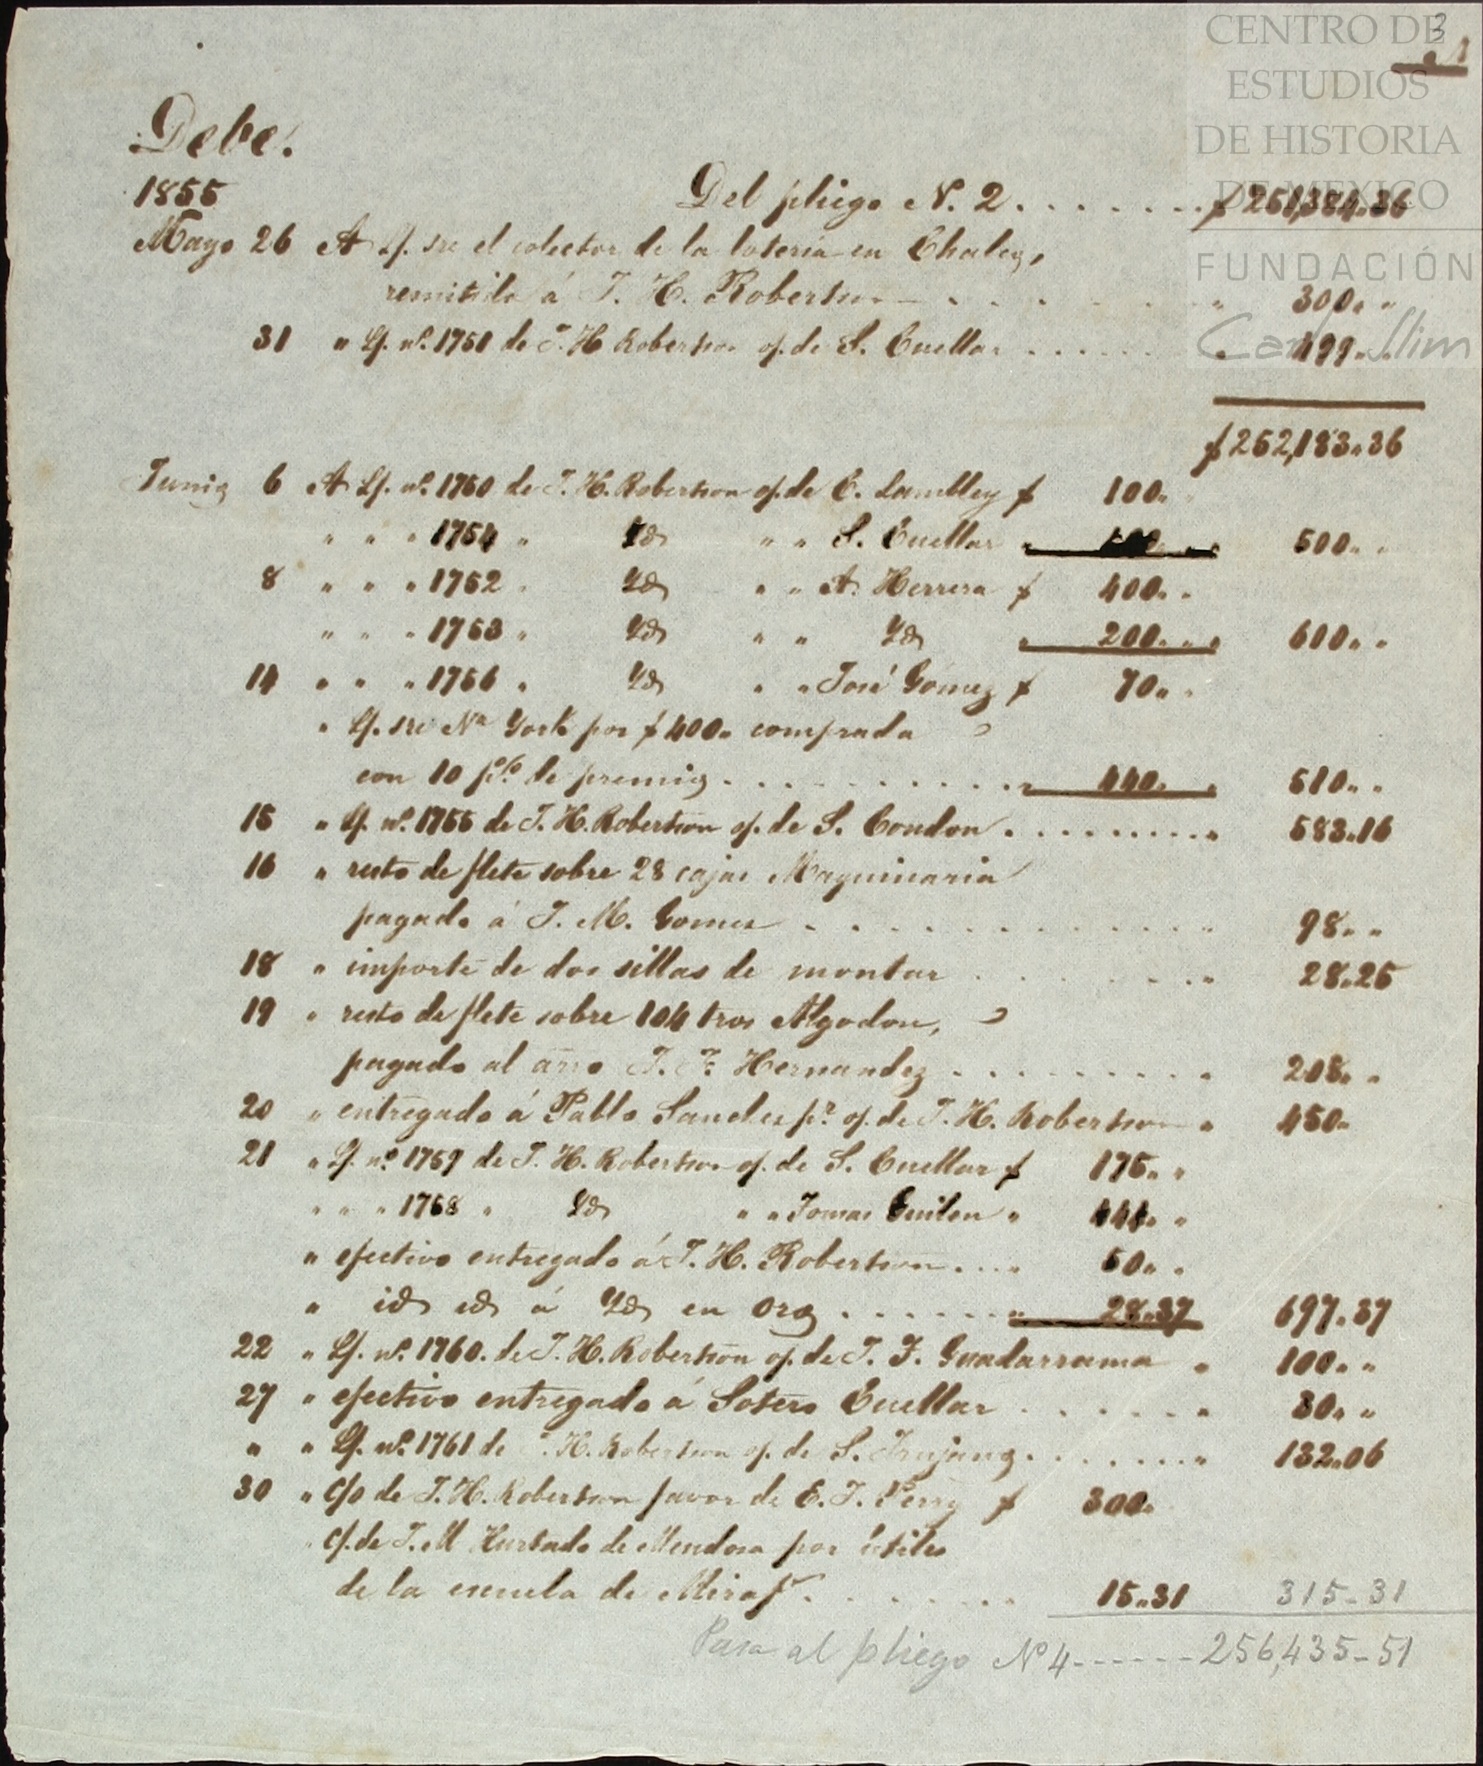 CENTRO DE
ESTUDIOS
DE HISTORIA
DE MEXICO
FUNDACIÓN
Carlos Slim
3
Debe.
1855
Del pliego N. 2 . . . . . . . $ 251,384.36
Mayo 26 A Lf. sre el colector de la loteria en Chalco,
remitida á T. H. Robertson . . . . . " 300. "
31 " Lf. nº. 1751 de T. H. Robertson of. de S. Cuellar . . . . . . " 499. "
$ 252,183.36
Junio 6 A Lf. nº. 1750 de T. H. Robertson of. de C. Lambley $ 100. "
" " " 1754 " Yd " " S. Cuellar " 400. " 500. "
8 " " " 1752 " Yd " " A. Herrera $ 400. "
" " " 1753 " Yd " " Yd " 200. " 600. "
14 " " " 1756 " Yd " " José Gomez $ 70. "
" Lf. sre Na. York por $ 400. comprada
con 10 p%. de premio . . . . . . . . . " 440. " 510. "
15 " Lf. nº. 1755 de T. H. Robertson of. de S. Condon . . . . . . . . . " 583.16
16 " resto de flete sobre 28 cajas Maquinaria
pagado á J. M. Gomez . . . . . . . . . . . " 98. "
18 " importe de dos sillas de montar . . . . . . . " 28.25
19 " resto de flete sobre 104 tros Algodon,
pagado al arro J. F. Hernandez . . . . . . . . . " 208. "
20 " entregado á Pablo Sanches pr. of. de T. H. Robertson " 450.
21 " Lf. nº. 1759 de T. H. Robertson of. de S. Cuellar $ 175. "
" " " 1758 " Yd " " Tomas Guilen " 444. "
" efectivo entregado á T. H. Robertson . . . " 50. "
" id id á Yd en oro . . . . . . " 28.37 697.37
22 " Lf. nº. 1760. de T. H. Robertson of. de J. F. Guadarrama " 100. "
27 " efectivo entregado á Sotero Cuellar . . . . . . " 30. "
" " Lf. nº. 1761 de T. H. Robertson of. de S. Trujano . . . . . . . " 132.06
30 " C/o de T. H. Robertson favor de E. J. Perry $ 300.
" Cf. de J. M Hurtado de Mendosa por útiles
de la escuela de Miraf. . . . . . . . 15.31 315-31
Pasa al pliego Nº 4 ------ 256,435-51